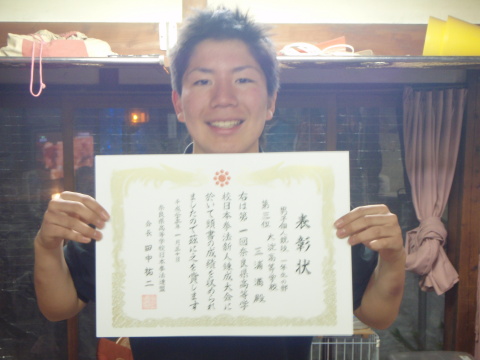 表彰状
男子個人競技 一年生の部
第三位 大淀高等学校
三浦 潘 殿
右は第一回奈良県高等学
校日本拳法新人錬成大会に
於いて頭書の成績を収められ
ましたので茲に之を賞します
平成二十五年一月二十日
奈良県高等学校日本拳法連盟
会長 田中 祐二